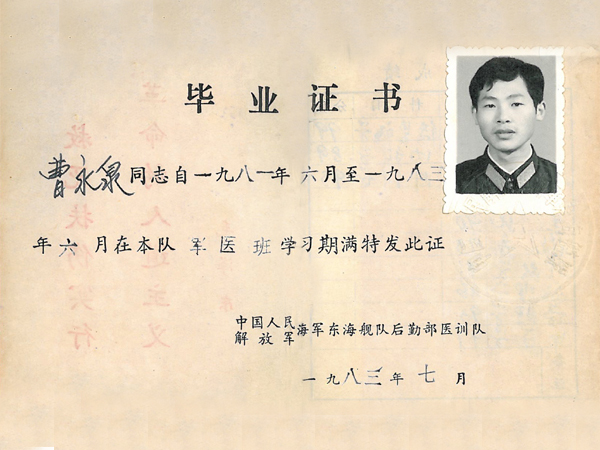 毕业证书
曹永泉同志自一九八一年六月至一九八三
年六月在本队军医班学习期满特发此证
中国人民
解放军
海军东海舰队后勤部医训队
一九八三年七月